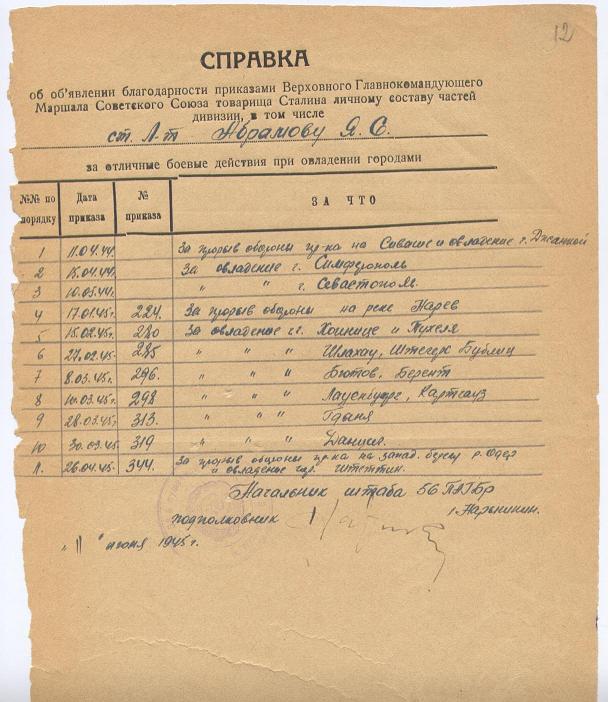 12
СПРАВКА
об об'явлении благодарности приказами Верховного Главнокомандующего
Маршала Советского Союза товарища Сталина личному составу частей
дивизии, в том числе
ст. Л-т Абрамову Я. С.
за отличные боевые действия при овладении городами
№№ по порядку Дата приказа № приказа ЗА ЧТО
1 11.04.44г. За прорыв обороны пр-ка на Сиваше и овладение г. Джанкой
2 15.04.44г. За овладение г. Симферополь
3 10.05.44г. " " г. Севастополь
4 17.01.45г. 224. За прорыв обороны на реке Нарев
5 15.02.45г. 280 За овладение г.г. Хойнице и Тухеля
6 27.02.45г. 285 " " " Шлахау, Штегерс Бублиц
7 8.03.45г. 296. " " " Бютов, Берент
8 10.03.45г. 298 " " " Лауенбург, Картауз
9 28.03.45г. 313. " " " Гдыня
10 30.03.45г. 319 " " " Данциг.
11. 26.04.45г. 344. За прорыв обороны пр-ка на запад. берегу р. Одер
и овладение гор. Штеттин.
Начальник штаба 56 ПАГБр
подполковник
"11" июня 1945г.